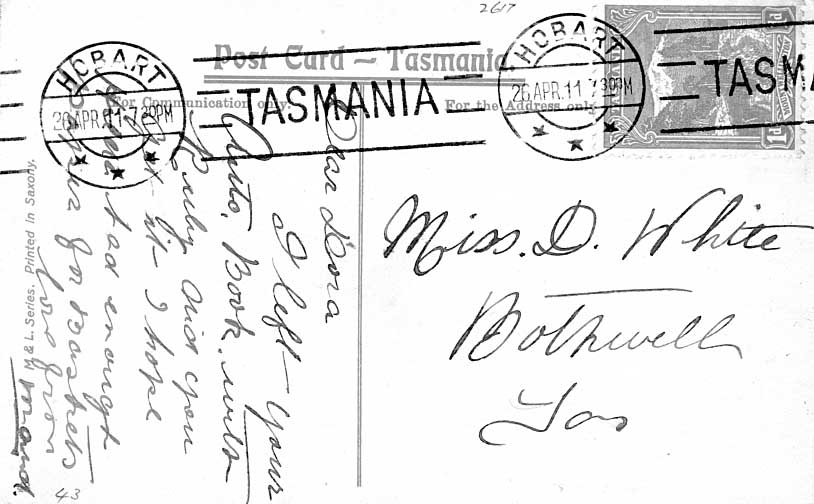 2617
Post Card — Tasmania
For Communication only.
For the Address only
HOBART
26 APR.11-7.30PM
TASMANIA
HOBART
26 APR.11-7.30PM
TASMA
1d
1d
Dear Dora
I left your
Auto. Book. with
Ruby did you
get it I hope
you had enough
for baskets
love from
Maud.
Miss. D. White
Bothwell
Tas
M & L. Series. Printed in Saxony.
43